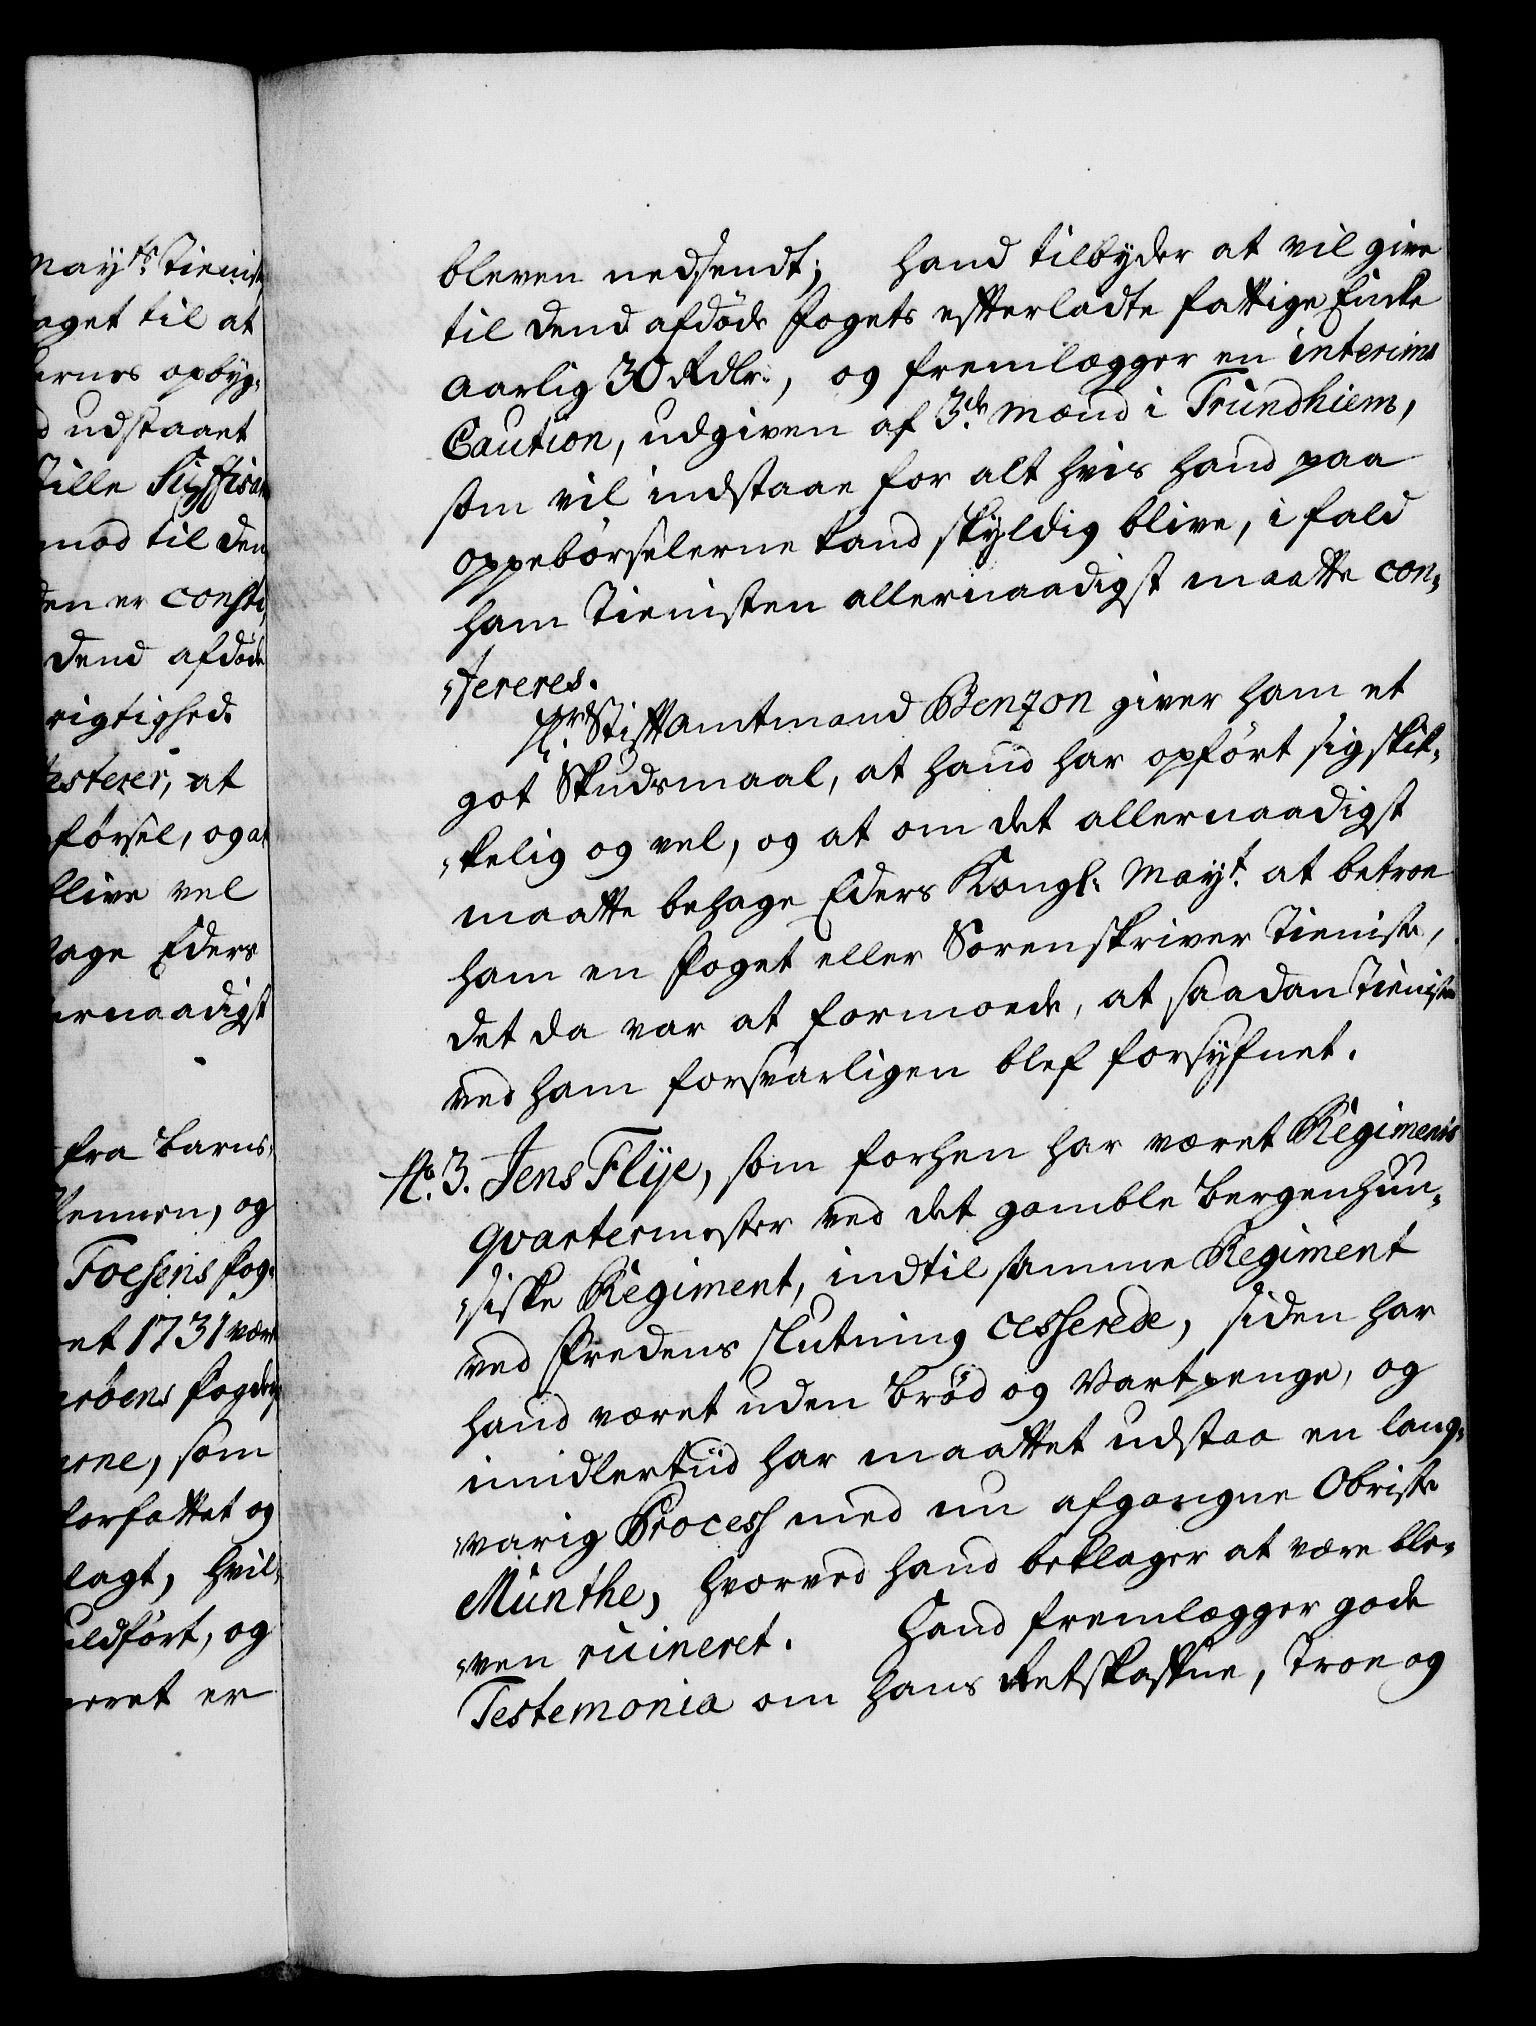 May.ts Tienist
oget til at
ernes opbyg-
d udstaaet
mod til den
en er consti
dend afdøde
rigtighed.
testerer, at
førsel, og at
blive vel
age Eders
ernaadigst
fra Barns-
ennen, og
Foesens Fog-
et 1731 være
ørne, som
forfattet og
lagt, hvil-
uldført, og
eret er
bleven nedsendt; hand tilbyder at vil give
til dend afdøde Fogets efterladte fattige Encke
aarlig 30 Rdlr., og fremlægger en interims
Caution, udgiven af 3de mænd i Trundhiem,
som vil indstaae for alt hvis hand paa
oppebørselerne kand skyldig blive, i fald
ham Tienisten allernaadigst maatte con-
-fereres.
Hr. Stiftamtmand Benzon giver ham et
got Skudsmaal, at hand har opført sig skik-
-kelig og vel, og at om det allernaadigst
maatte behage Eders Kongl. May.t at betroe
ham en Foget eller Sorenskriver Tieniste,
det da var at formoede, at saadan Tieniste
ved ham forsvarligen blef forsyfnet.
No. 3. Jens Flye, som forhen har været Regiments
Qvartermester ved det gamble Bergenhuu-
-siske Regiment, indtil samme Regiment
ved Fredens slutning cesserede, siden har
hand været uden Brød og Vartpenge, og
imidlertiid har maattet udstaa en lang-
-varig Process med nu afgangne Obriste
Munthe, hvorved hand beklager at være ble-
-ven ruineret. Hand fremlægger gode
Testemonia om hans Retskaffne, Troe og